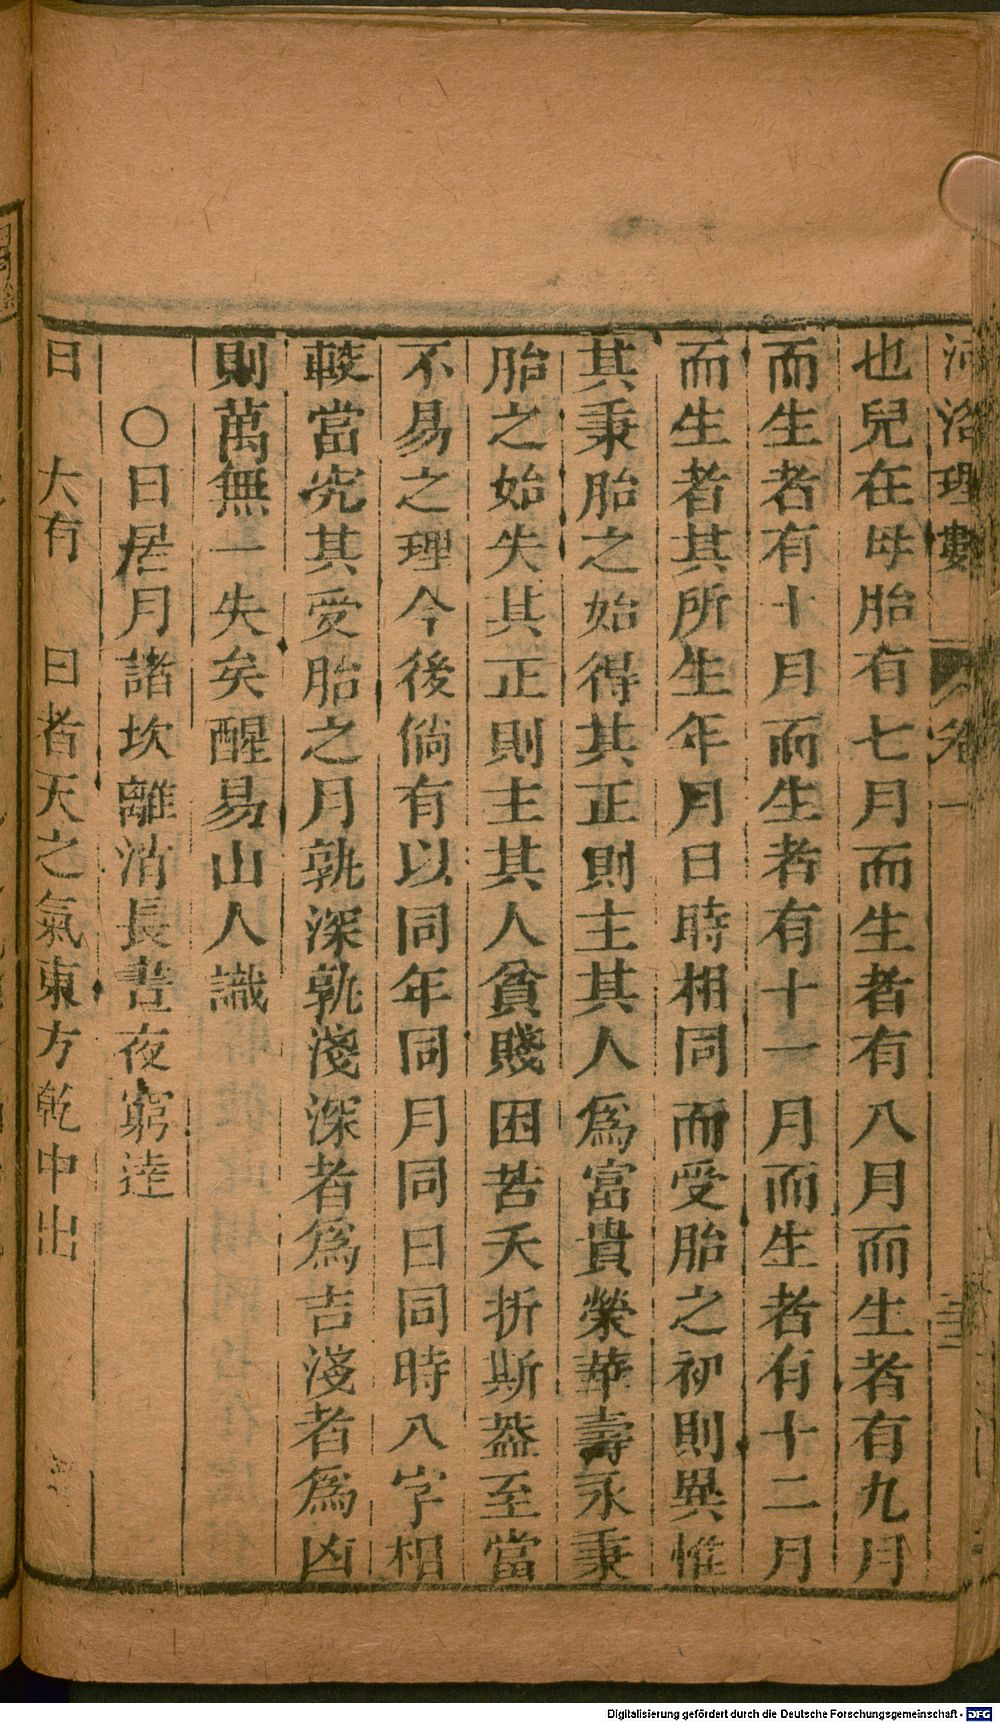 河洛理數 卷一
也兒在母胎有七月而生者有八月而生者有九月
而生者有十月而生者有十一月而生者有十二月
而生者其所生年月日時相同而受胎之初則異惟
其秉胎之始得其正則主其人為富貴榮華壽永秉
胎之始失其正則主其人貧賤困苦夭折斯蓋至當
不易之理今後倘有以同年同月同日同時八字相
較當究其受胎之月孰深孰淺深者為吉淺者為凶
則萬無一失矣醒易山人識
○日居月諸坎離消長晝夜窮逵
日 大有 日者天之氣東方乾中出
Digitalisierung gefördert durch die Deutsche Forschungsgemeinschaft - DFG